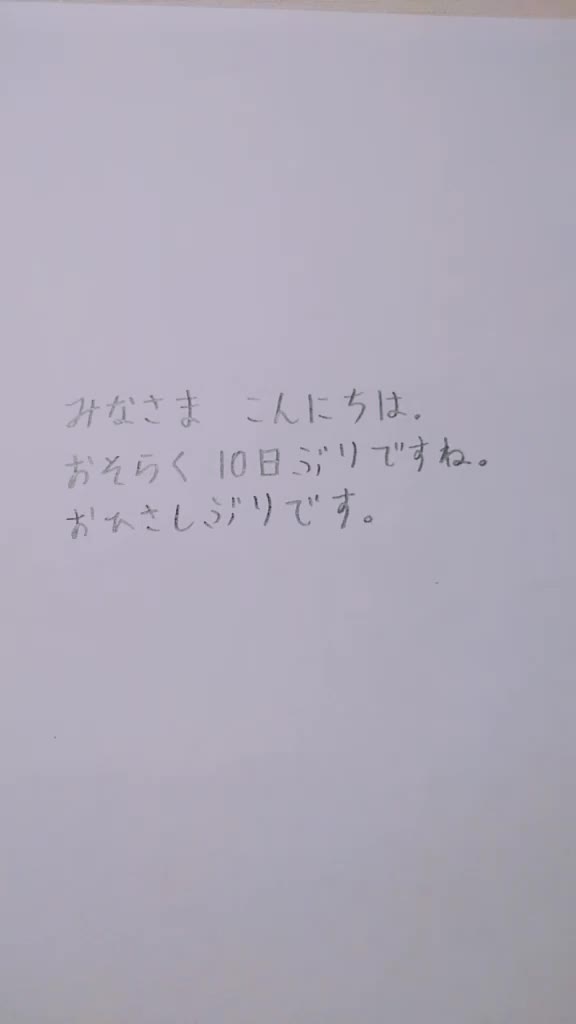 みなさま こんにちは.
おそらく 10日ぶりですね。
おひさしぶりです。